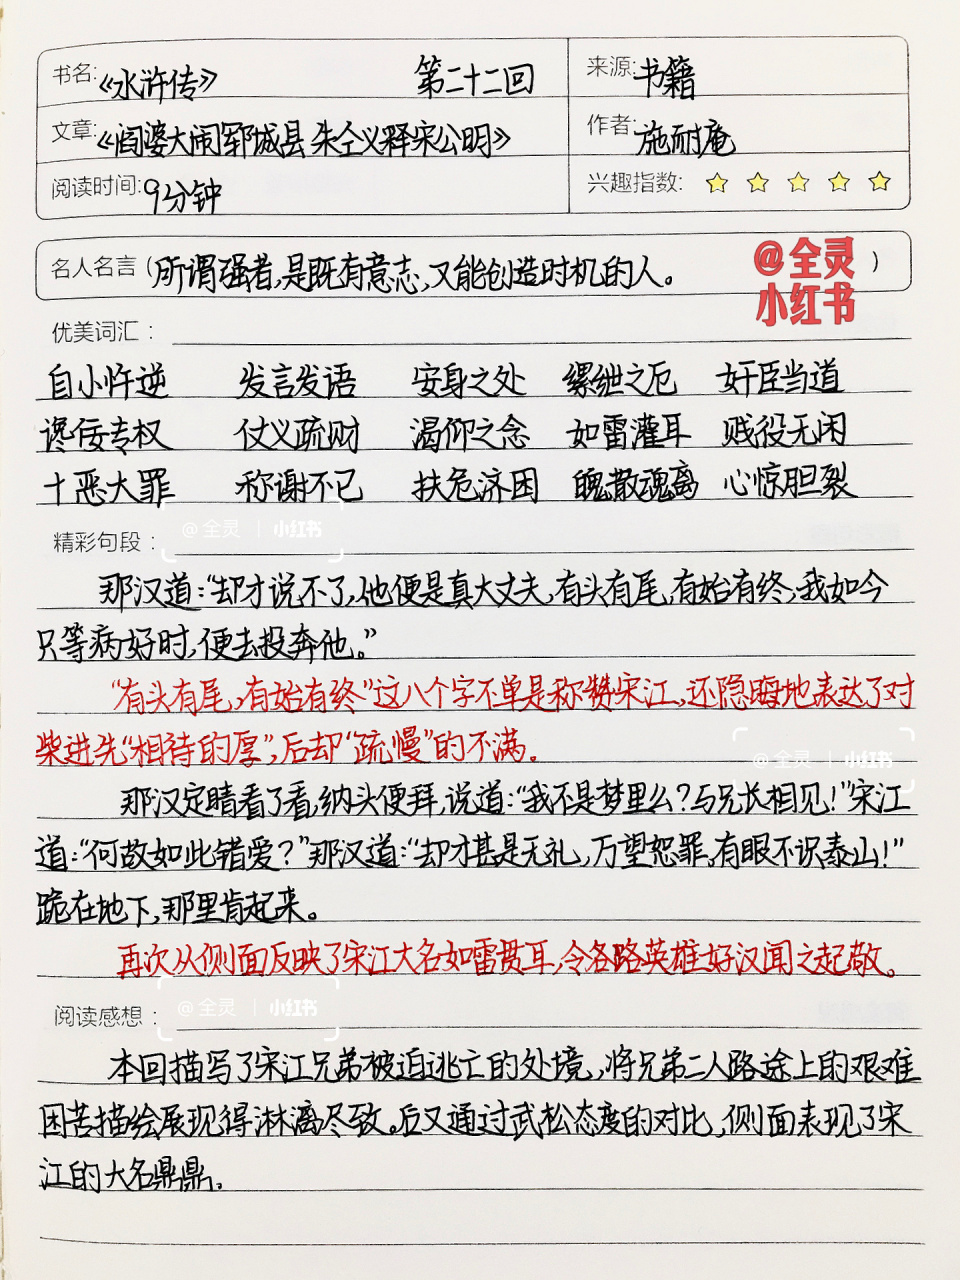 书名:《水浒传》 第二十二回 来源:书籍
文章:《阎婆大闹郓城县 朱仝义释宋公明》 作者:施耐庵
阅读时间:9分钟 兴趣指数:
名人名言(所谓强者,是既有意志,又能创造时机的人。)
@全灵
小红书
优美词汇:
自小忤逆 发言发语 安身之处 缧绁之厄 奸臣当道
谗佞专权 仗义疏财 渴仰之念 如雷灌耳 贱役无闲
十恶大罪 称谢不已 扶危济困 魄散魂离 心惊胆裂
@全灵 | 小红书
精彩句段:
那汉道:“却才说不了,他便是真大丈夫,有头有尾,有始有终,我如今
只等病好时,便去投奔他。”
“有头有尾,有始有终”这八个字不单是称赞宋江,还隐晦地表达了对
柴进先“相待的厚”,后却“疏慢”的不满。
@全灵 | 小红书
那汉定睛看了看,纳头便拜,说道:“我不是梦里么?与兄长相见!”宋江
道:“何故如此错爱?”那汉道:“却才甚是无礼,万望恕罪,有眼不识泰山!”
跪在地下,那里肯起来。
再次从侧面反映了宋江大名如雷贯耳,令各路英雄好汉闻之起敬。
@全灵 | 小红书
阅读感想:
本回描写了宋江兄弟被迫逃亡的处境,将兄弟二人路途上的艰难
困苦描绘展现得淋漓尽致。后又通过武松态度的对比,侧面表现了宋
江的大名鼎鼎。